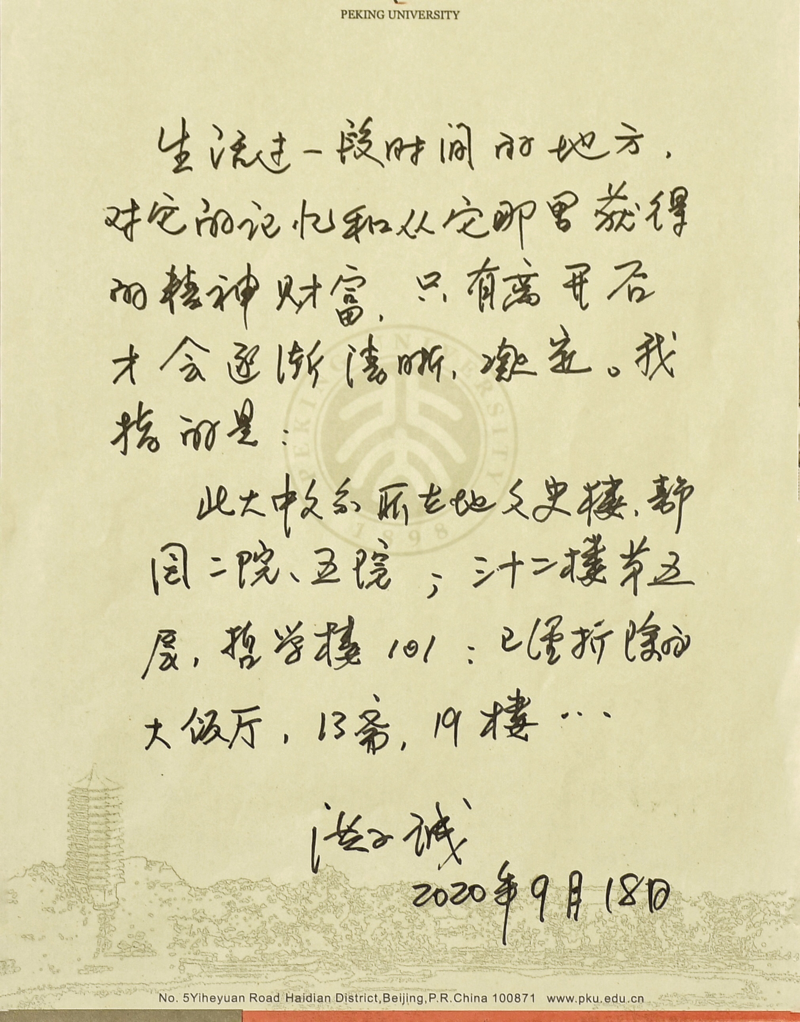 PEKING UNIVERSITY
生活过一段时间的地方，
对它的记忆和从它那里获得
的精神财富，只有离开后
才会逐渐清晰、凝定。我
指的是：
北大中文系所在地文史楼、静
园二院、五院；三十二楼第五
层，哲学楼101；已经拆除的
大饭厅，13斋，19楼…
洪子诚
2020年9月18日
No. 5Yiheyuan Road Haidian District,Beijing,P.R.China 100871 www.pku.edu.cn